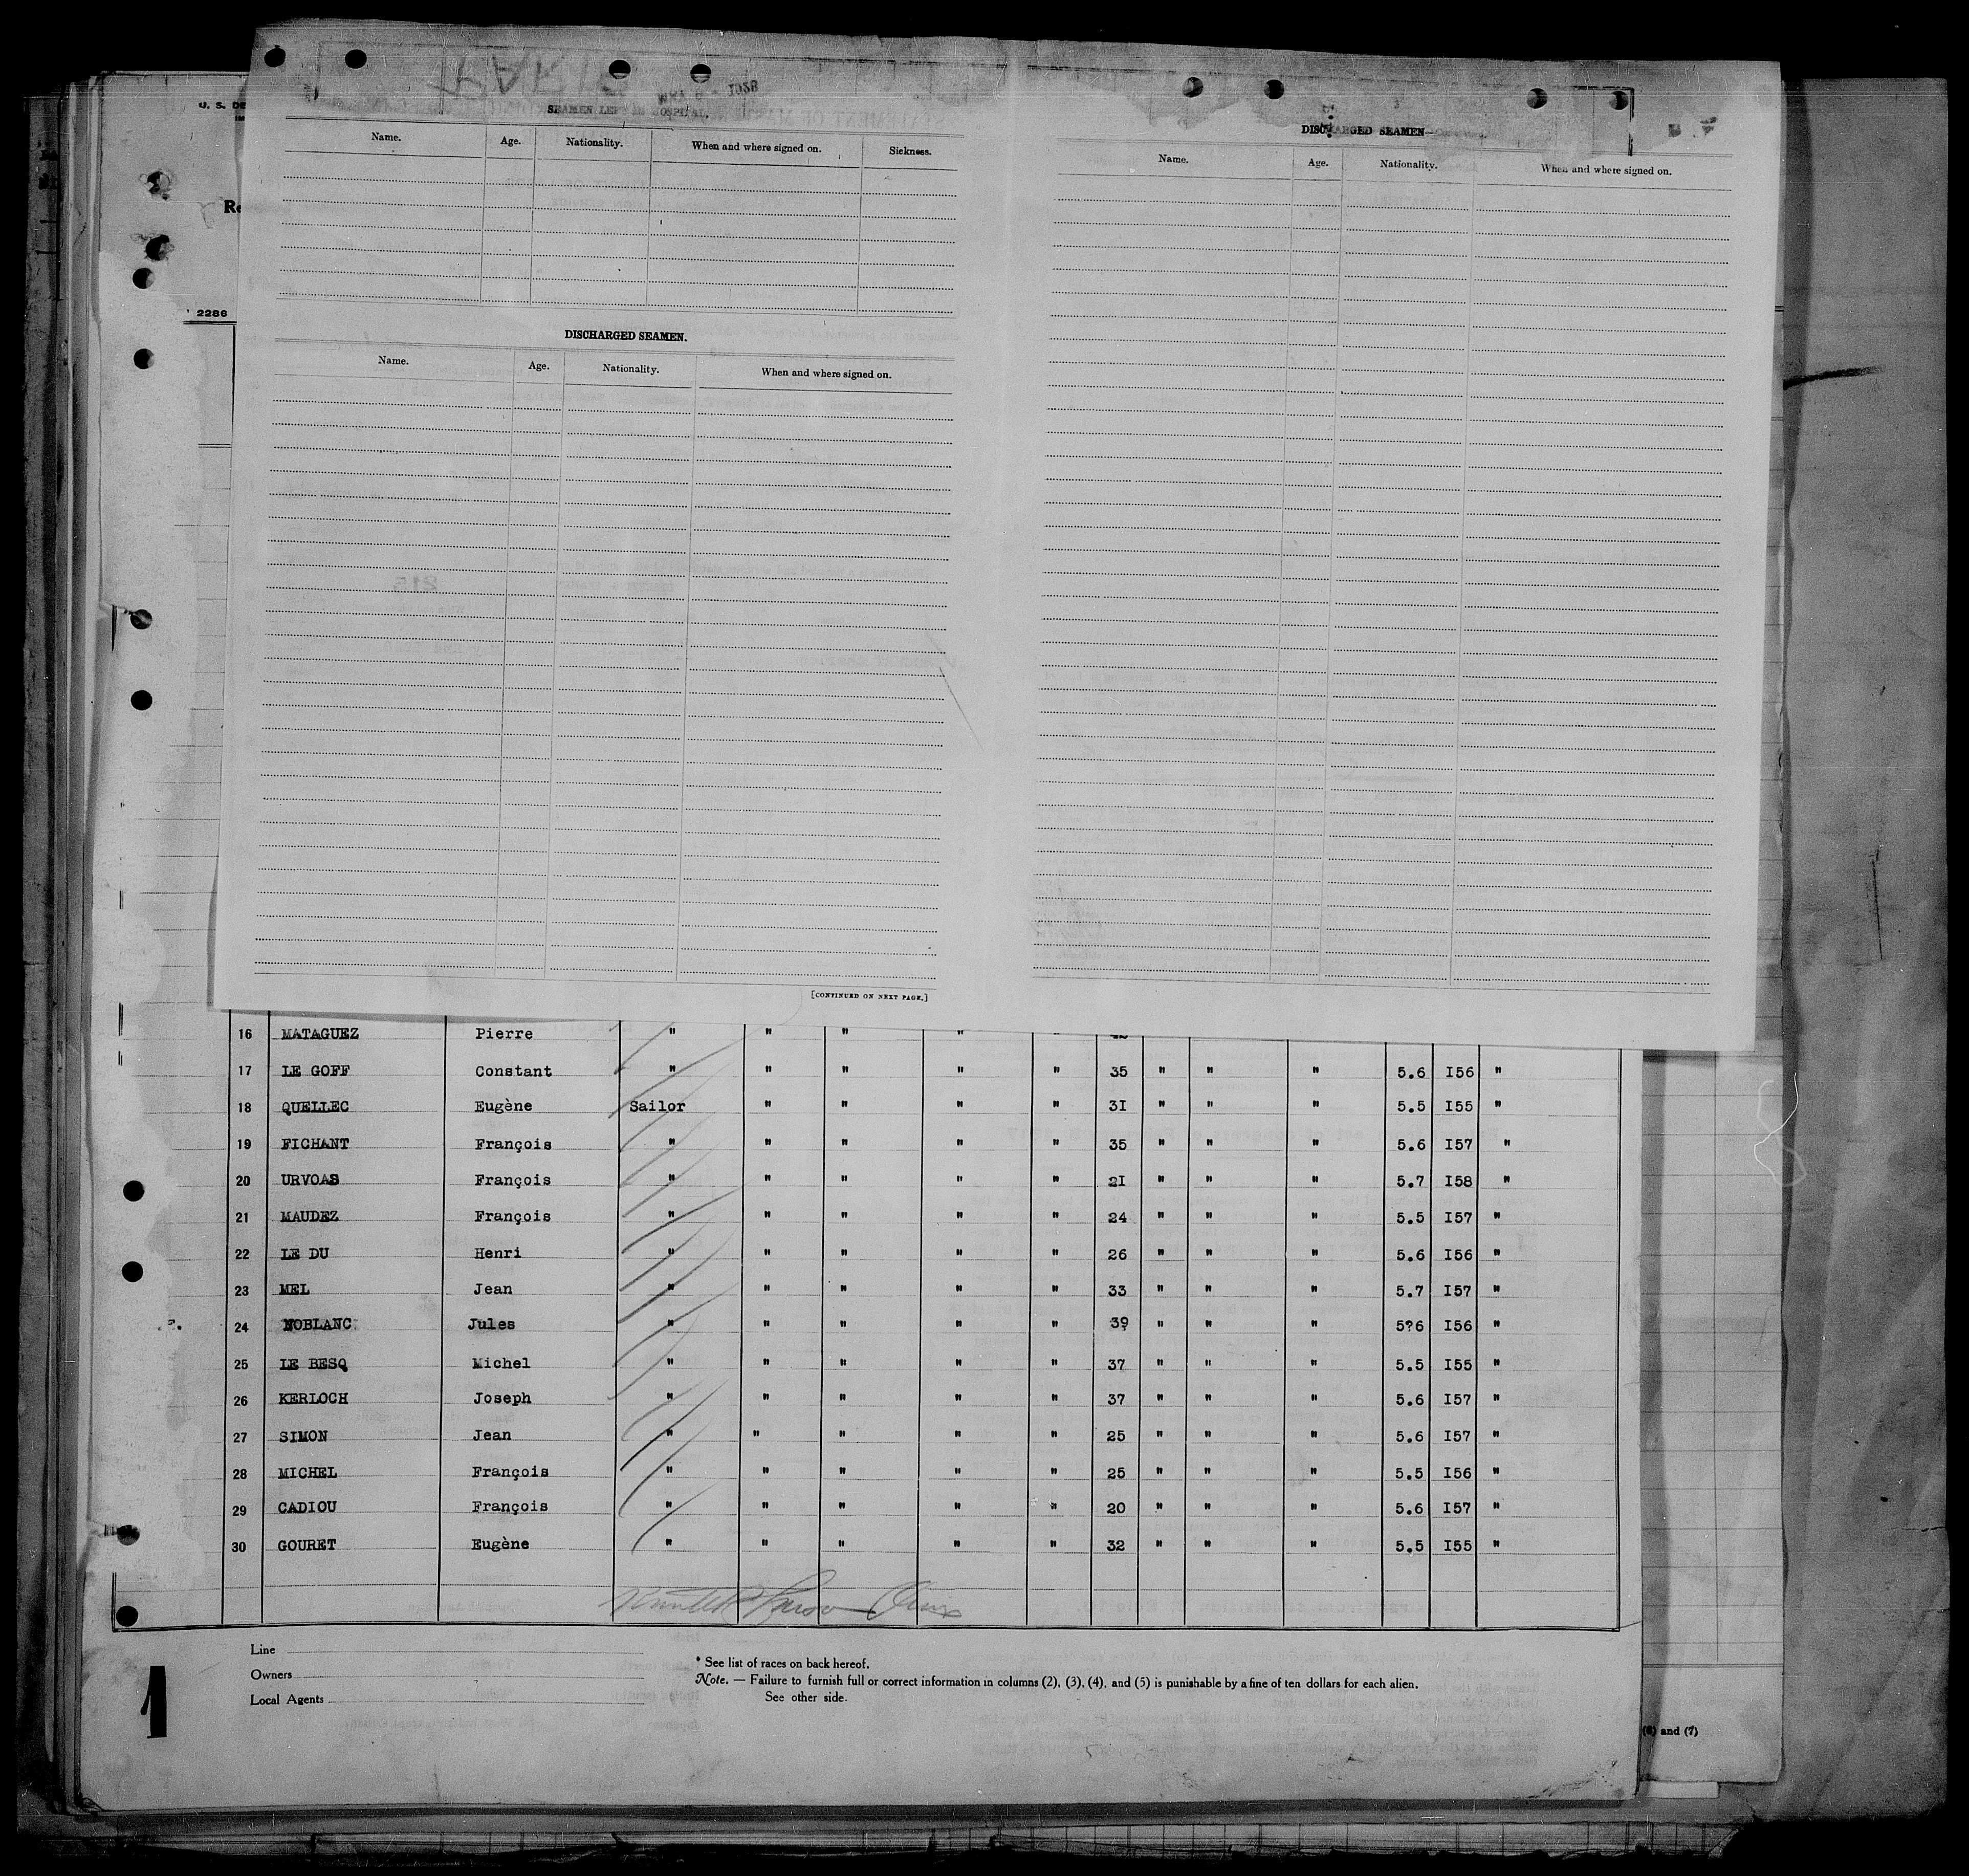 U. S. DE
Re
2286
1928
SEAMEN LEFT IN HOSPITAL.
Name. Age. Nationality. When and where signed on. Sickness.
DISCHARGED SEAMEN.
Name. Age. Nationality. When and where signed on.
[CONTINUED ON NEXT PAGE.]
DISCHARGED SEAMEN
Name. Age. Nationality. When and where signed on.
16 MATAGUEZ Pierre " " " " "
17 LE GOFF Constant " " " " " 35 " " " 5.6 I56 "
18 QUELLEC Eugène Sailor " " " " 3I " " " 5.5 I55 "
19 FICHANT François " " " " " 35 " " " 5.6 I57 "
20 URVOAS François " " " " " 2I " " " 5.7 I58 "
21 MAUDEZ François " " " " " 24 " " " 5.5 I57 "
22 LE DU Henri " " " " " 26 " " " 5.6 I56 "
23 MEL Jean " " " " " 33 " " " 5.7 I57 "
24 NOBLANC Jules " " " " " 39 " " " 5?6 I56 "
25 LE BESQ Michel " " " " " 37 " " " 5.5 I55 "
26 KERLOCH Joseph " " " " " 37 " " " 5.6 I57 "
27 SIMON Jean " " " " " 25 " " " 5.6 I57 "
28 MICHEL François " " " " " 25 " " " 5.5 I56 "
29 CADIOU François " " " " " 20 " " " 5.6 I57 "
30 GOURET Eugène " " " " " 32 " " " 5.5 I55 "
Line
Owners
Local Agents
* See list of races on back hereof.
Note. — Failure to furnish full or correct information in columns (2), (3), (4), and (5) is punishable by a fine of ten dollars for each alien.
See other side.
1
(6) and (7)